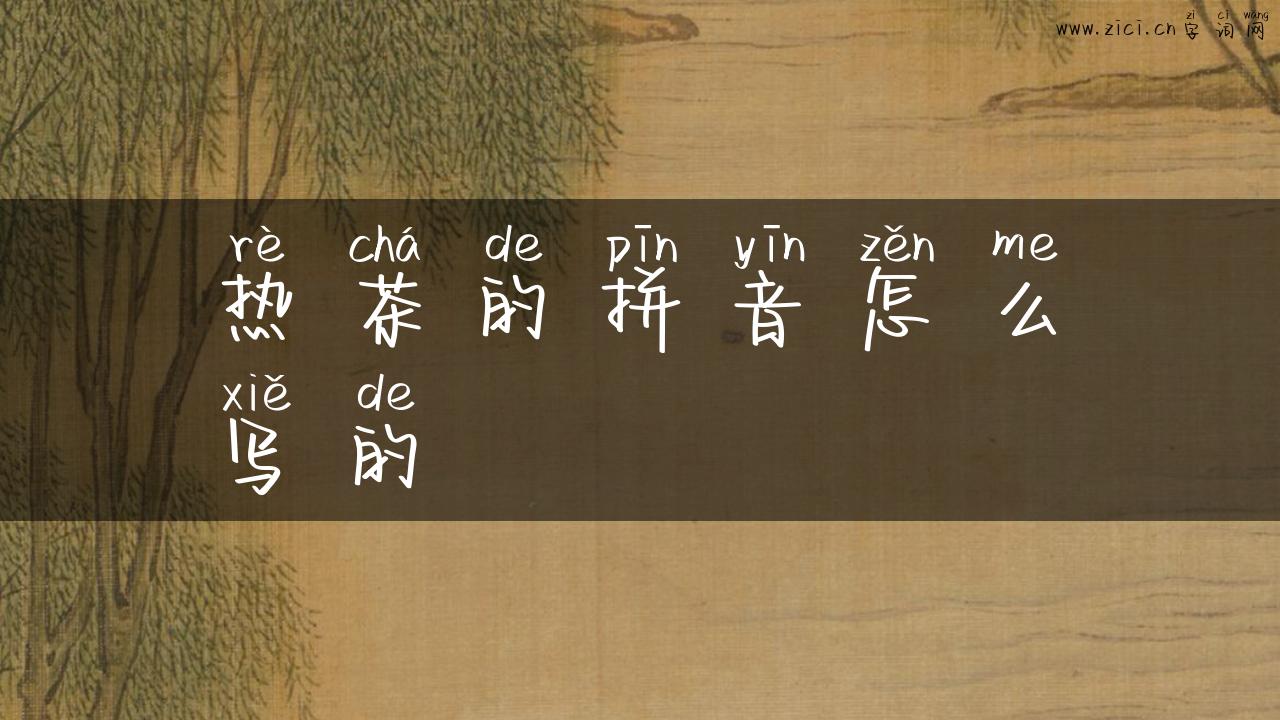 zì cí wǎng
www.zici.cn 字词网
rè chá de pīn yīn zěn me
热茶的拼音怎么
xiě de
写的